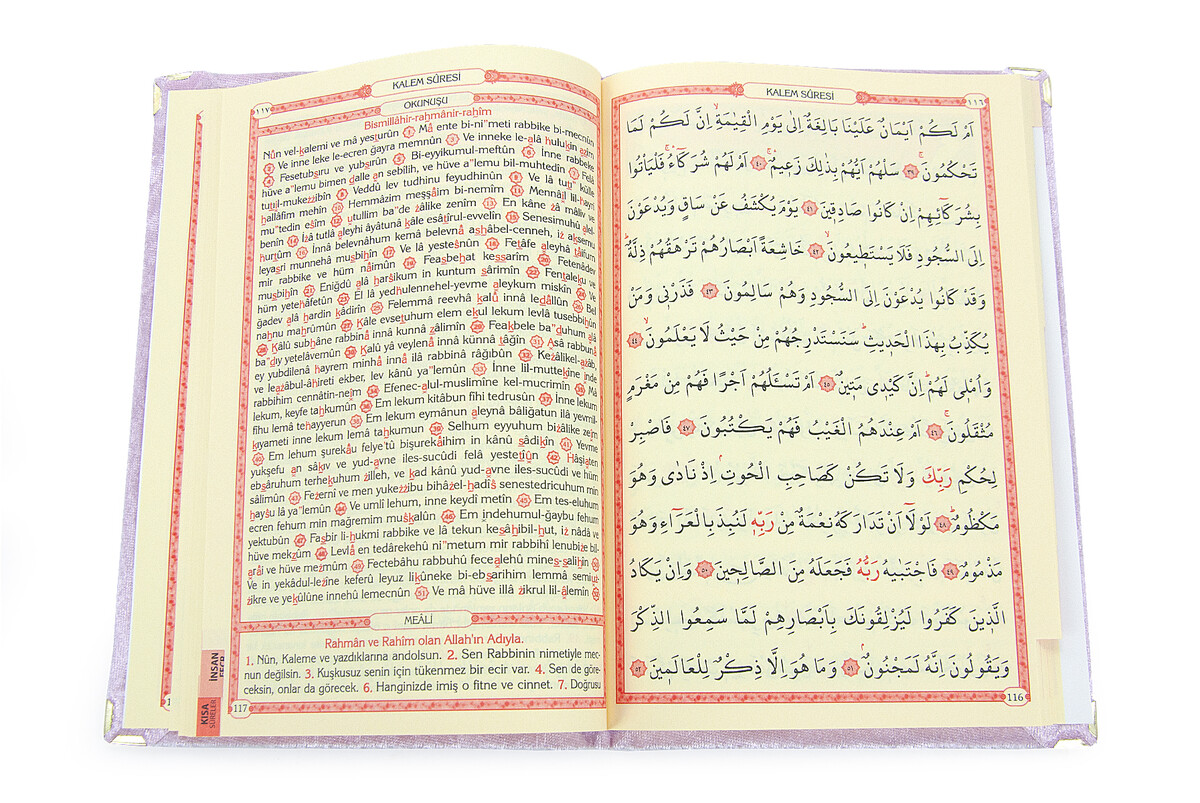 KALEM SÛRESİ
١١٦
اَمْ لَكُمْ اَيْمَانٌ عَلَيْنَا بَالِغَةٌ اِلٰى يَوْمِ الْقِيٰمَةِۙ اِنَّ لَكُمْ لَمَا
تَحْكُمُونَۚ ﴿٣٩﴾ سَلْهُمْ اَيُّهُمْ بِذٰلِكَ زَعِيمٌۚ ﴿٤٠﴾ اَمْ لَهُمْ شُرَكَٓاءُۚ فَلْيَأْتُوا
بِشُرَكَٓائِهِمْ اِنْ كَانُوا صَادِقِينَ ﴿٤١﴾ يَوْمَ يُكْشَفُ عَنْ سَاقٍ وَيُدْعَوْنَ
اِلَى السُّجُودِ فَلَا يَسْتَطِيعُونَۙ ﴿٤٢﴾ خَاشِعَةً اَبْصَارُهُمْ تَرْهَقُهُمْ ذِلَّةٌۜ
وَقَدْ كَانُوا يُدْعَوْنَ اِلَى السُّجُودِ وَهُمْ سَالِمُونَ ﴿٤٣﴾ فَذَرْنِي وَمَنْ
يُكَذِّبُ بِهٰذَا الْحَدِيثِۜ سَنَسْتَدْرِجُهُمْ مِنْ حَيْثُ لَا يَعْلَمُونَۙ ﴿٤٤﴾
وَاُمْلِي لَهُمْۜ اِنَّ كَيْدِي مَتِينٌ ﴿٤٥﴾ اَمْ تَسْـَٔلُهُمْ اَجْرًا فَهُمْ مِنْ مَغْرَمٍ
مُثْقَلُونَۚ ﴿٤٦﴾ اَمْ عِنْدَهُمُ الْغَيْبُ فَهُمْ يَكْتُبُونَ ﴿٤٧﴾ فَاصْبِرْ
لِحُكْمِ رَبِّكَ وَلَا تَكُنْ كَصَاحِبِ الْحُوتِۢ اِذْ نَادٰى وَهُوَ
مَكْظُومٌۜ ﴿٤٨﴾ لَوْلَٓا اَنْ تَدَارَكَهُ نِعْمَةٌ مِنْ رَبِّهٖ لَنُبِذَ بِالْعَرَٓاءِ وَهُوَ
مَذْمُومٌ ﴿٤٩﴾ فَاجْتَبٰيهُ رَبُّهُ فَجَعَلَهُ مِنَ الصَّالِحِينَ ﴿٥٠﴾ وَاِنْ يَكَادُ
الَّذِينَ كَفَرُوا لَيُزْلِقُونَكَ بِاَبْصَارِهِمْ لَمَّا سَمِعُوا الذِّكْرَ
وَيَقُولُونَ اِنَّهُ لَمَجْنُونٌۢ ﴿٥١﴾ وَمَا هُوَ اِلَّا ذِكْرٌ لِلْعَالَمِينَ ﴿٥٢﴾
116
١١٧
KALEM SÛRESİ
OKUNUŞU
Bismillâhir-rahmânir-rahîm
Nûn vel-kalemi ve mâ yesturûn 1 Mâ ente bi-ni"meti rabbike bi-mecnûn
2 Ve inne leke le-ecren ğayra memnûn 3 Ve inneke le-alâ hulukin azîm
4 Fesetubsıru ve yubsırûn 5 Bi-eyyikumul-meftûn 6 İnne rabbeke
hüve a"lemu bimen dalle an sebîlih, ve hüve a"lemu bil-muhtedîn 7 Felâ
tutııl-mukezzibîn 8 Veddû lev tudhinu feyudhinûn 9 Ve lâ tutı' külle
hallâfim mehîn 10 Hemmâzim meşşâim bi-nemîm 11 Mennâıl lil-hayri
mu"tedin esîm 12 utullim ba"de zâlike zenîm 13 En kâne zâ mâliv ve
benîn 14 İzâ tutlâ aleyhi âyâtunâ kâle esâtîrul-evvelîn 15 Senesimuhû alel-
hurtûm 16 İnnâ belevnâhum kemâ belevnâ ashâbel-cenneh, iz aksemu
leyasri munnehâ musbihîn 17 Ve lâ yestesnûn 18 Fetâfe aleyhâ tâifum
mir rabbike ve hüm nâimûn 19 Feasbehat kessarîm 20 Fetenâdev
musbihîn 21 Eniğdû alâ harsikum in kuntum sârimîn 22 Fentaleku ve
hüm yetehâfetûn 23 El lâ yedhulennehel-yevme aleykum miskîn 24 Ve
ğadev alâ hardin kâdirîn 25 Felemmâ reevhâ kalû innâ ledâllûn 26 Bel
nahnu mahrûmûn 27 Kâle evsetuhum elem ekul lekum levlâ tusebbihûn
28 Kâlû subhâne rabbinâ innâ kunnâ zâlimîn 29 Feakbele ba"duhum alâ
ba"dıy yetelâvemûn 30 Kalû yâ veylenâ innâ künnâ tâğîn 31 Asâ rabbunâ
ey yubdilenâ hayrem minhâ innâ ilâ rabbinâ râğıbûn 32 Kezâlikel-azâb,
ve leazâbul-âhireti ekber, lev kânû ya"lemûn 33 İnne lil-muttekîne inde
rabbihim cennâtin-neîm 34 Efenec-alul-muslimîne kel-mucrimîn 35 Mâ
lekum, keyfe tahkumûn 36 Em lekum kitâbun fîhi tedrusûn 37 İnne lekum
fîhi lemâ tehayyerun 38 Em lekum eymânun aleynâ bâliğatun ilâ yevmil-
kıyameti inne lekum lemâ tahkumun 39 Selhum eyyuhum bizâlike zeîm
40 Em lehum şurekâu felye'tû bişurekâihim in kânû sâdikîn 41 Yevme
yukşefu an sâkıv ve yud-avne iles-sucûdi felâ yestetîûn 42 Hâşiaten
ebsâruhum terhekuhum zilleh, ve kad kânû yud-avne iles-sucûdi ve hüm
sâlimûn 43 Fezernî ve men yukezzibu bihâzel-hadîs senestedricuhum min
haysu lâ ya"lemûn 44 Ve umlî lehum, inne keydî metîn 45 Em tes-eluhum
ecren fehum min mağremim muskalûn 46 Em indehumul-ğaybu fehum
yektubûn 47 Fasbir li-hukmi rabbike ve lâ tekun kesâhibil-hut, iz nâdâ ve
hüve mekzûm 48 Levlâ en tedârekehû ni"metum mir rabbihî lenubize bil-
arâi ve hüve mezmûm 49 Fectebâhu rabbuhû fecealehû mines-salihîn 50
Ve in yekâdul-lezîne keferû leyuz likûneke bi-ebsarihim lemmâ semiuz-
zikre ve yekûlûne innehû lemecnûn 51 Ve mâ hüve illâ zikrul lil-âlemîn 52
MEÂLİ
Rahmân ve Rahîm olan Allah'ın Adıyla.
1. Nûn, Kaleme ve yazdıklarına andolsun. 2. Sen Rabbinin nimetiyle mec-
nun değilsin. 3. Kuşkusuz senin için tükenmez bir ecir var. 4. Sen de göre-
ceksin, onlar da görecek. 6. Hanginizde imiş o fitne ve cinnet. 7. Doğrusu
117
İNSAN
KISA
SÛRELER